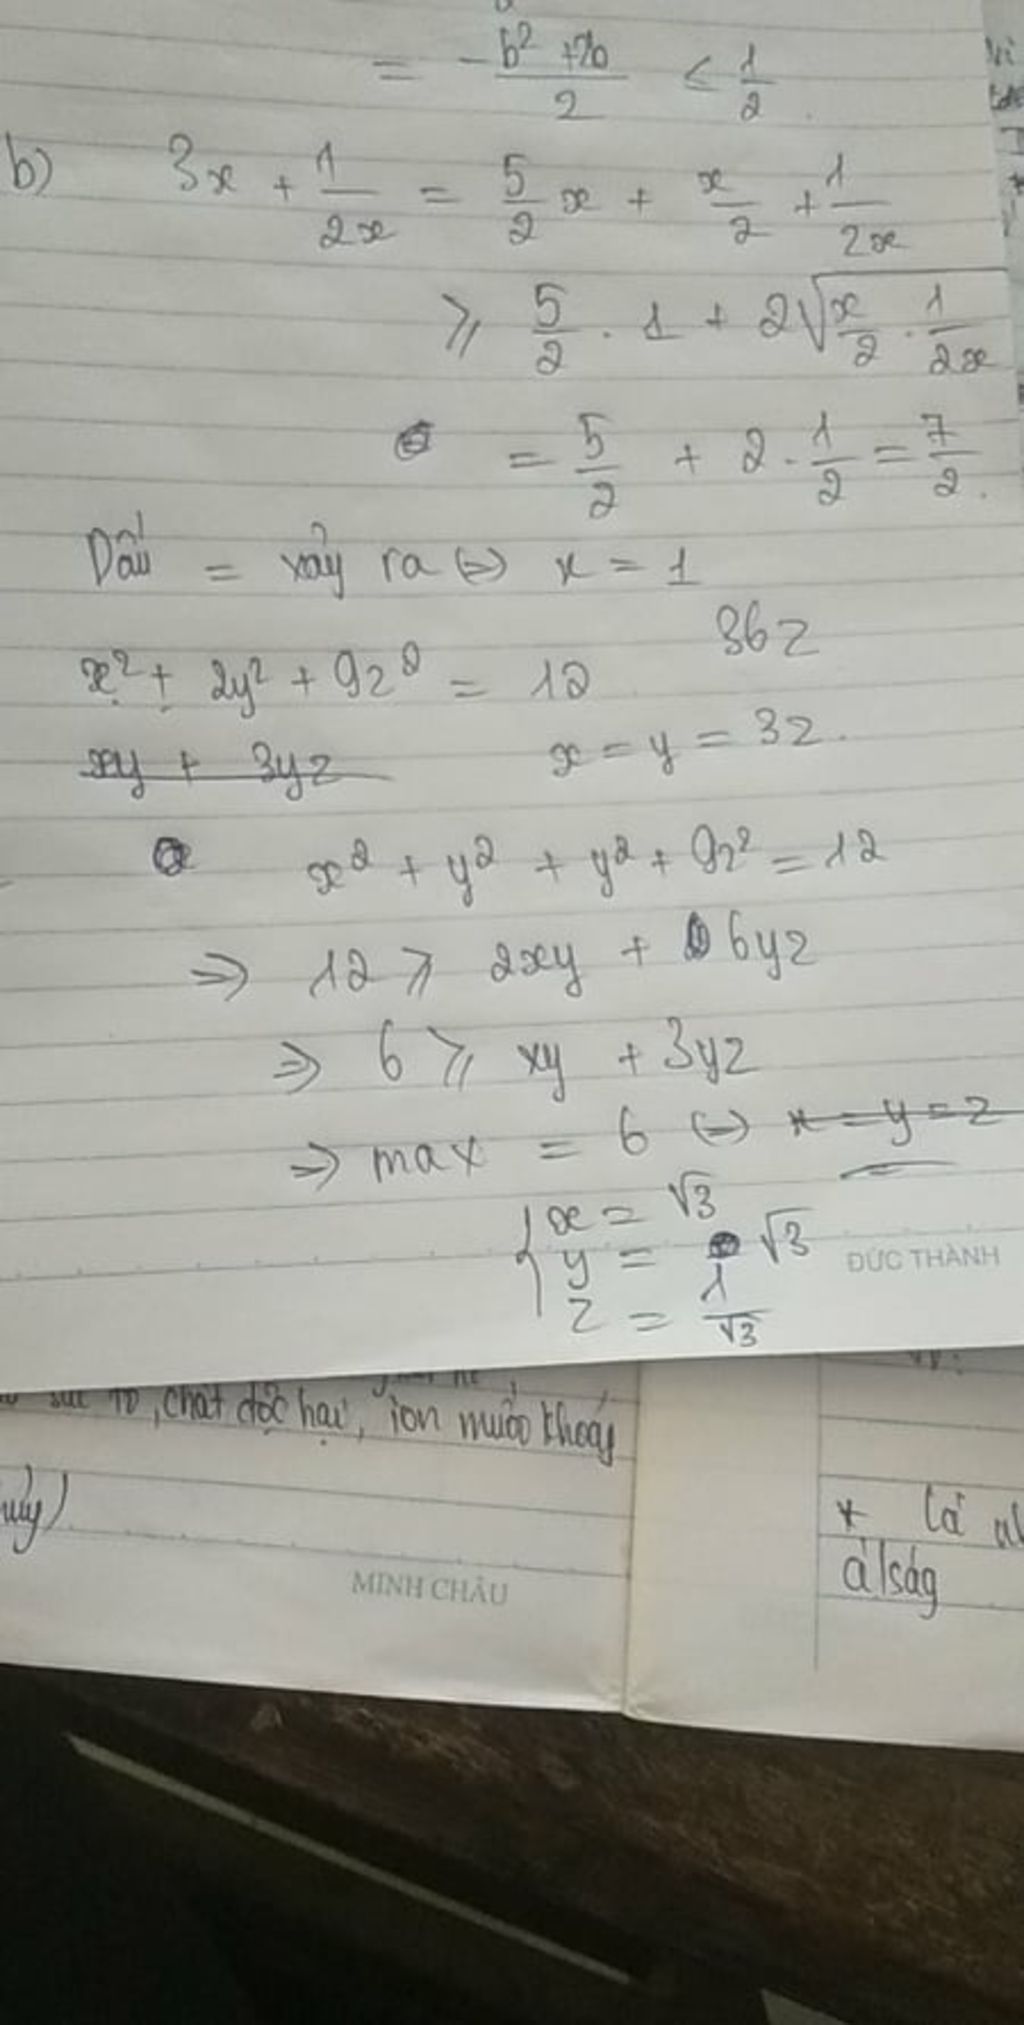 = -b² + 2b / 2 ≤ 1/2
b) 3x + 1/2x = 5/2 x + x/2 + 1/2x
≥ 5/2 . 1 + 2√(x/2 . 1/2x)
= 5/2 + 2 . 1/2 = 7/2.
Dấu = xảy ra <=> x = 1
36z
x² + 2y² + 9z² = 12
xy + 3yz x = y = 3z.
x² + y² + y² + 9z² = 12
=> 12 ≥ 2xy + 6yz
=> 6 ≥ xy + 3yz
=> max = 6 <=> x = y = z
{ x = √3
y = √3
z = 1/√3
ĐỨC THÀNH
, chất độc hại, ion muối khoáng
MINH CHÂU
* Lá